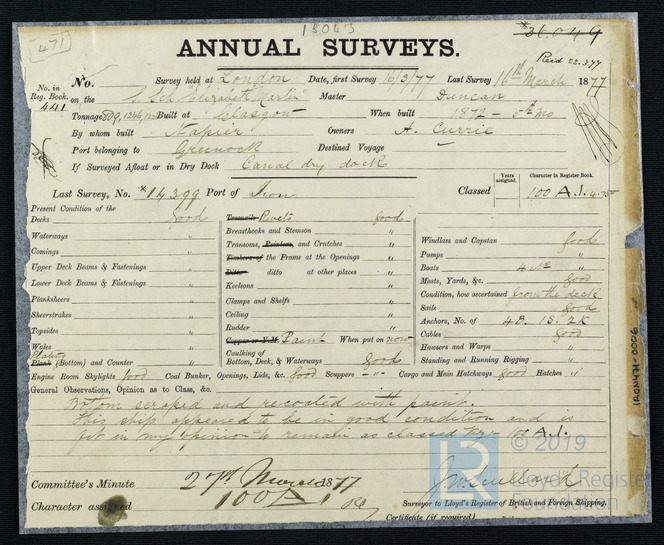 18043
*26,049
471
ANNUAL SURVEYS.
Reid 22.3.77
No. in Reg. Book. 441
No. Survey held at London Date, first Survey 16/3/77 Last Survey 16th March 1877
on the S. Sch "Elizabeth Martin" Master Duncan
Tonnage Built at Glasgow When built 1872 - 5th Mo
By whom built Napier Owners A. Currie
Port belonging to Greenock Destined Voyage -
If Surveyed Afloat or in Dry Dock Canal dry dock
Years assigned. Character in Register Book.
Last Survey, No. *14399 Port of Iron Classed 100 A.1. 4.75
Present Condition of the
Decks good
Waterways "
Comings "
Upper Deck Beams & Fastenings "
Lower Deck Beams & Fastenings "
Planksheers "
Sheerstrakes "
Topsides "
Wales "
Plating
Plank (Bottom) and Counter "
Treenails Rivets good
Breasthooks and Stemson "
Transoms, Pointers, and Crutches "
Timbers of the Frame at the Openings "
Ditto ditto at other places "
Keelsons "
Clamps and Shelfs "
Ceiling "
Rudder "
Copper or Y.M. Paint When put on now
Caulking of
Bottom, Deck, & Waterways good
Windlass and Capstan good
Pumps "
Boats 4 "
Masts, Yards, &c. good
Condition, how ascertained from the deck
Sails good
Anchors, No. of 4B. 1S. 2K
Cables good
Hawsers and Warps "
Standing and Running Rigging "
Engine Room Skylights good Coal Bunker, Openings, Lids, &c. good Scuppers " Cargo and Main Hatchways good Hatches "
General Observations, Opinion as to Class, &c.
Bottom scraped and recoated with paint.
This ship appeared to be in good condition and is
fit in my opinion to remain as classed 100 A.1.
© 2019
LR Lloyd's Register Foundation
Committee's Minute 27th March 1877
Character assigned 100 A 1
Surveyor to Lloyd's Register of British and Foreign Shipping.
Certificate (if required)
IRON471-0006